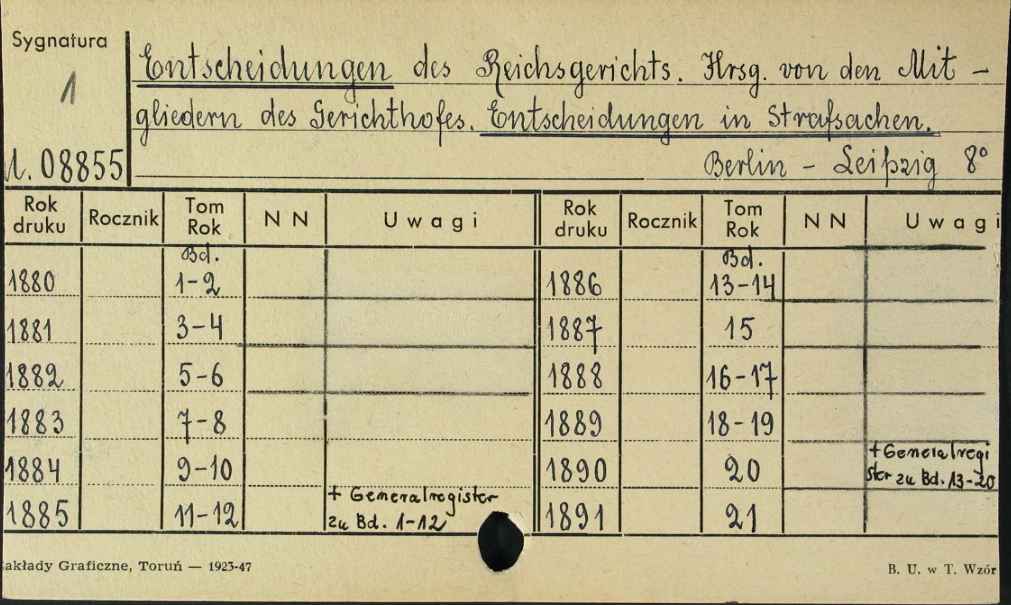 Sygnatura
1
Entscheidungen des Reichsgerichts. Hrsg. von den Mit-
gliedern des Gerichthofes. Entscheidungen in Strafsachen.
08855
Berlin - Leipzig 8°
Rok druku Rocznik Tom Rok NN Uwagi Rok druku Rocznik Tom Rok NN Uwagi
Bd. Bd.
1880 1-2 1886 13-14
1881 3-4 1887 15
1882 5-6 1888 16-17
1883 7-8 1889 18-19
1884 9-10 1890 20 + Generalregi
ster zu Bd. 13-20
1885 11-12 + Generalregister
zu Bd. 1-12 1891 21
akłady Graficzne, Toruń — 1923-47
B. U. w T. Wzór